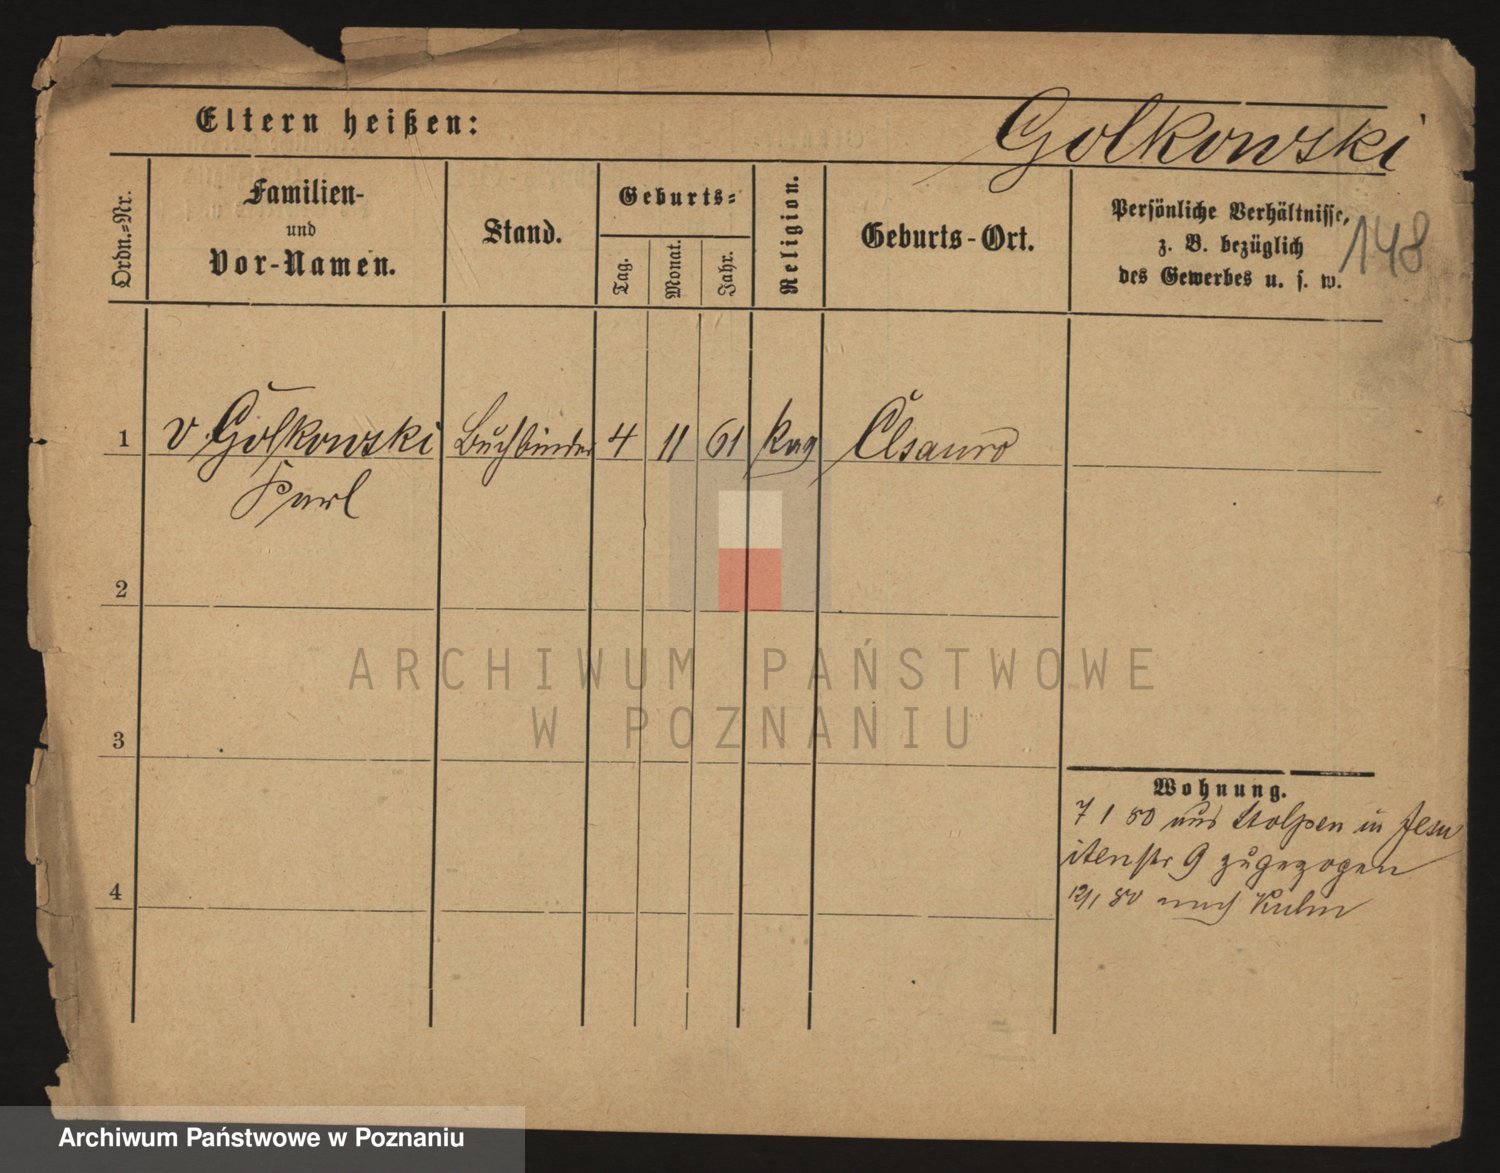 Eltern heißen:
Golkowski
148
Ordn.-Nr.
Familien-
und
Vor-Namen.
Stand.
Geburts-
Tag.
Monat.
Jahr.
Religion.
Geburts-Ort.
Persönliche Verhältnisse,
z. B. bezüglich
des Gewerbes u. s. w.
1 v Golkowski Buchbinder 4 11 61
Karl
2
3
4
Wohnung.
7 1 80 aus Stolpen in Jesu
itenstr 9 zugezogen
12/1 80 nach Kulm
ARCHIWUM PAŃSTWOWE
W POZNANIU
Archiwum Państwowe w Poznaniu